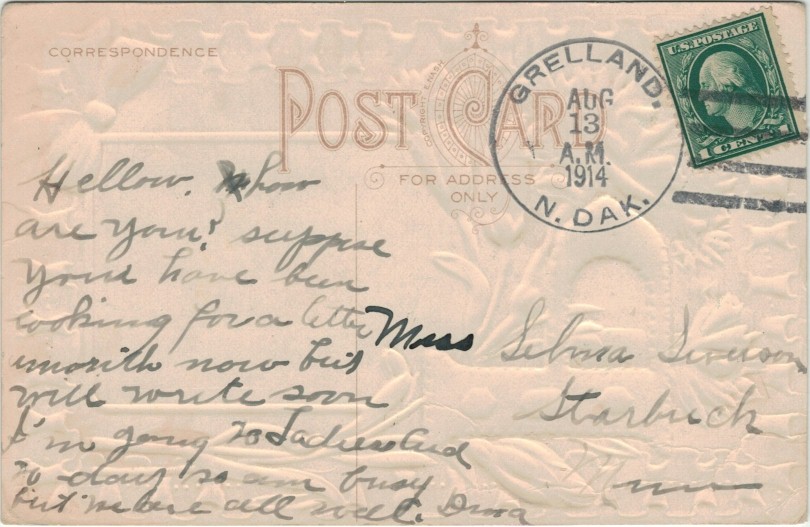 CORRESPONDENCE
POST CARD
FOR ADDRESS
ONLY
GRELLAND.
AUG
13
A.M.
1914
N. DAK.
U.S. POSTAGE
1 CENT 1
Hellow. how
are you? suppose
your have been
looking for a letter
month now but
will write soon
I'm going to Ladies Aid
to-day so am busy
but we are all well.
Miss Selma Siverson
Starbuck
Minn